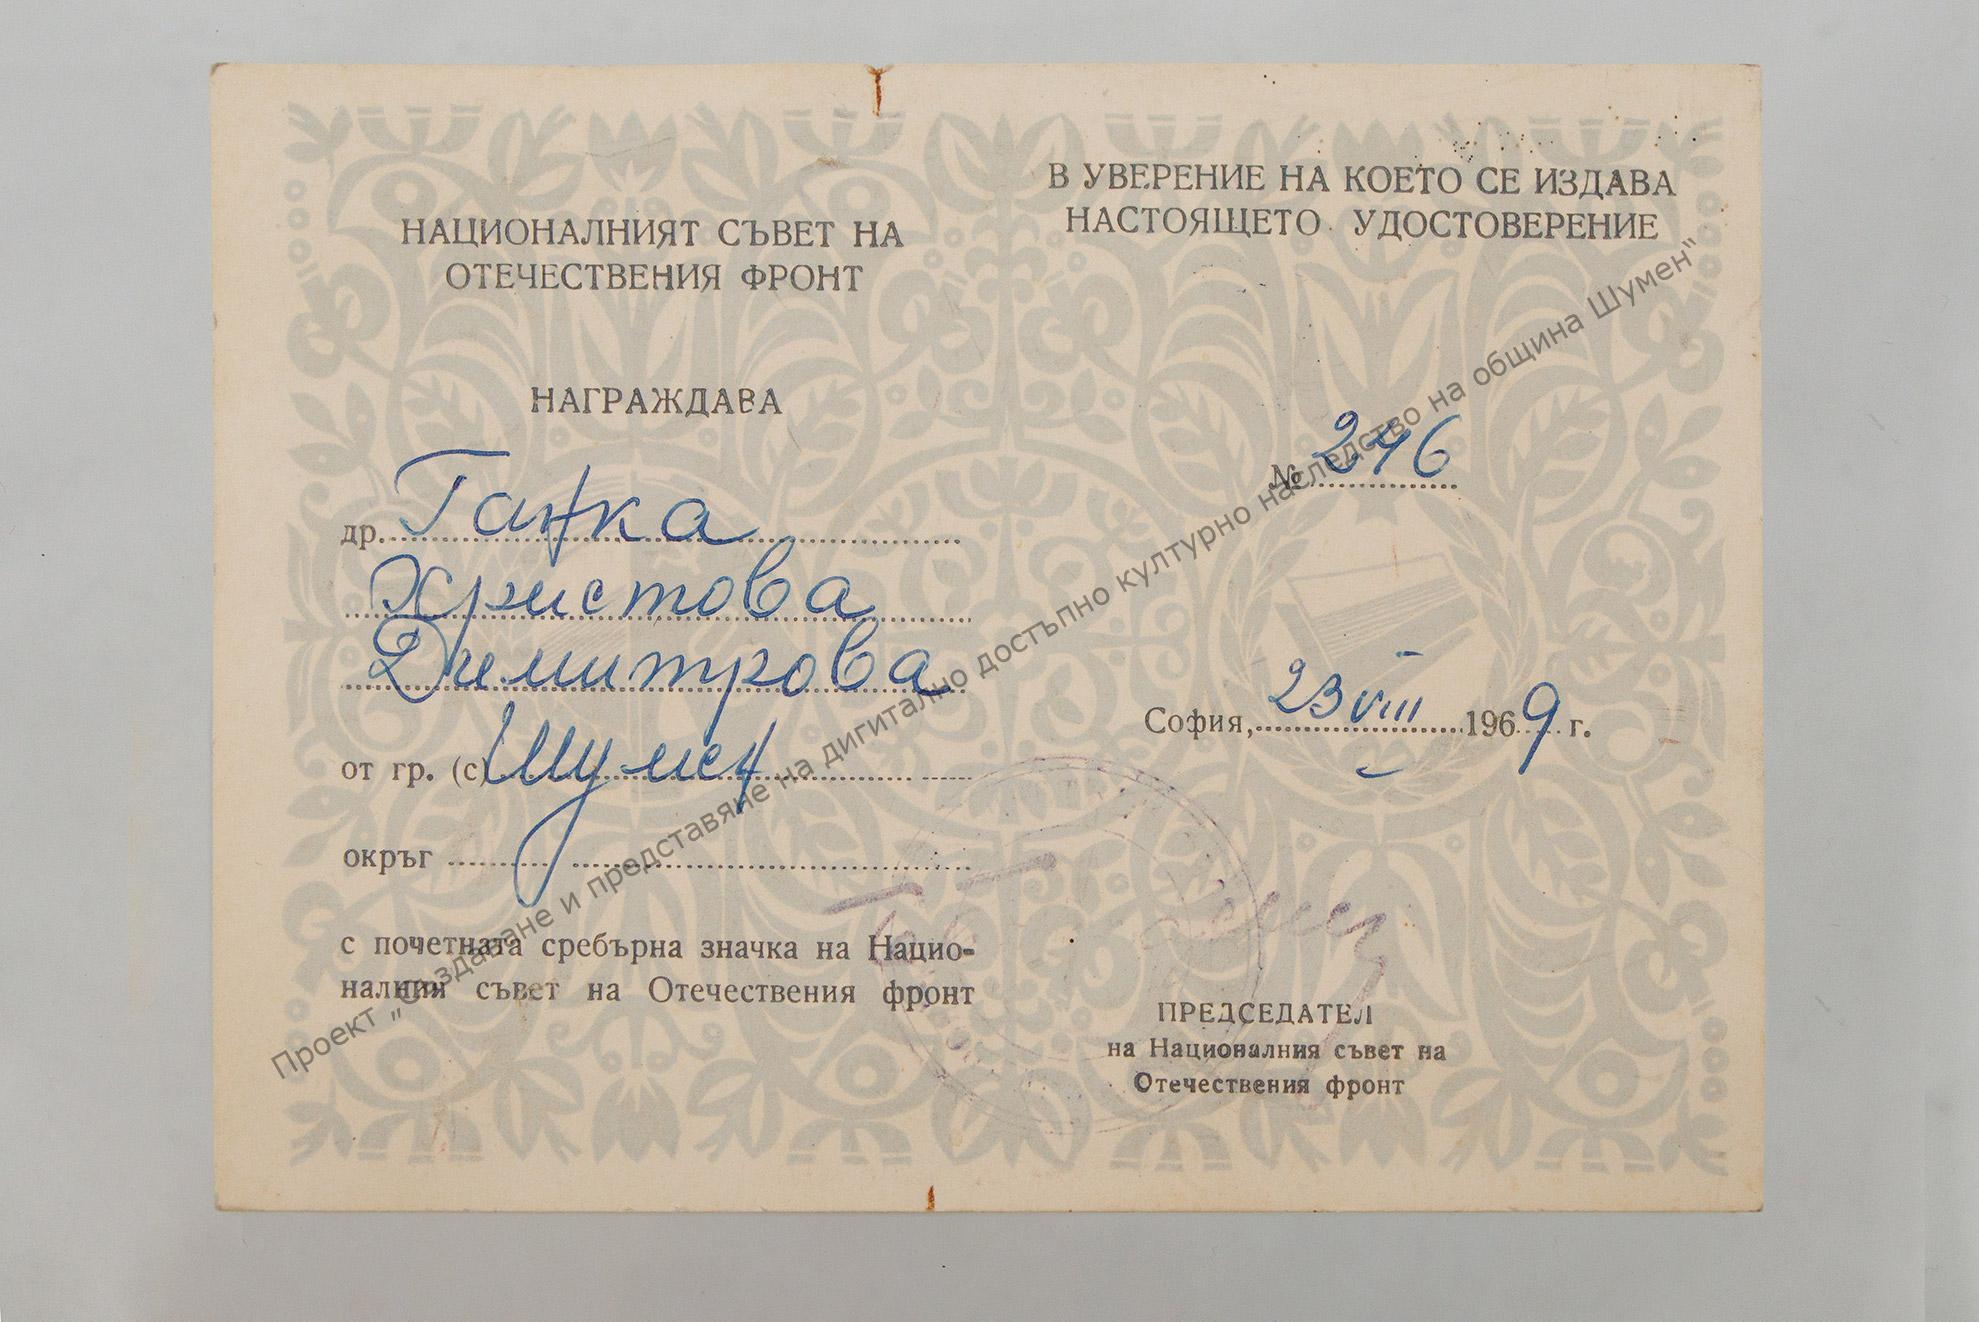 НАЦИОНАЛНИЯТ СЪВЕТ НА
ОТЕЧЕСТВЕНИЯ ФРОНТ
НАГРАЖДАВА
др. Ганка
Христова
Димитрова
от гр. (с) Шумен
окръг
с почетната сребърна значка на Нацио-
налния съвет на Отечествения фронт
В УВЕРЕНИЕ НА КОЕТО СЕ ИЗДАВА
НАСТОЯЩЕТО УДОСТОВЕРЕНИЕ
№ 246
София, 23 VIII 1969 г.
ПРЕДСЕДАТЕЛ
на Националния съвет на
Отечествения фронт
Проект „Създаване и представяне на дигитално достъпно културно наследство на община Шумен“